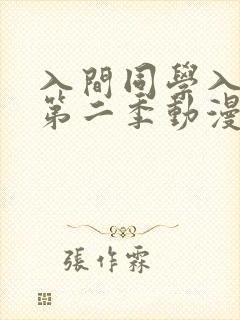 入間同學入
第二季動漫
張作霖